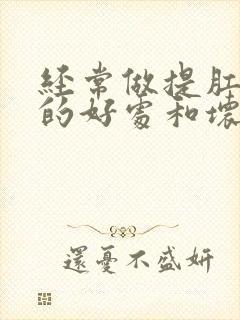 經常做提肛
的好處和壞
還憂不盛妍